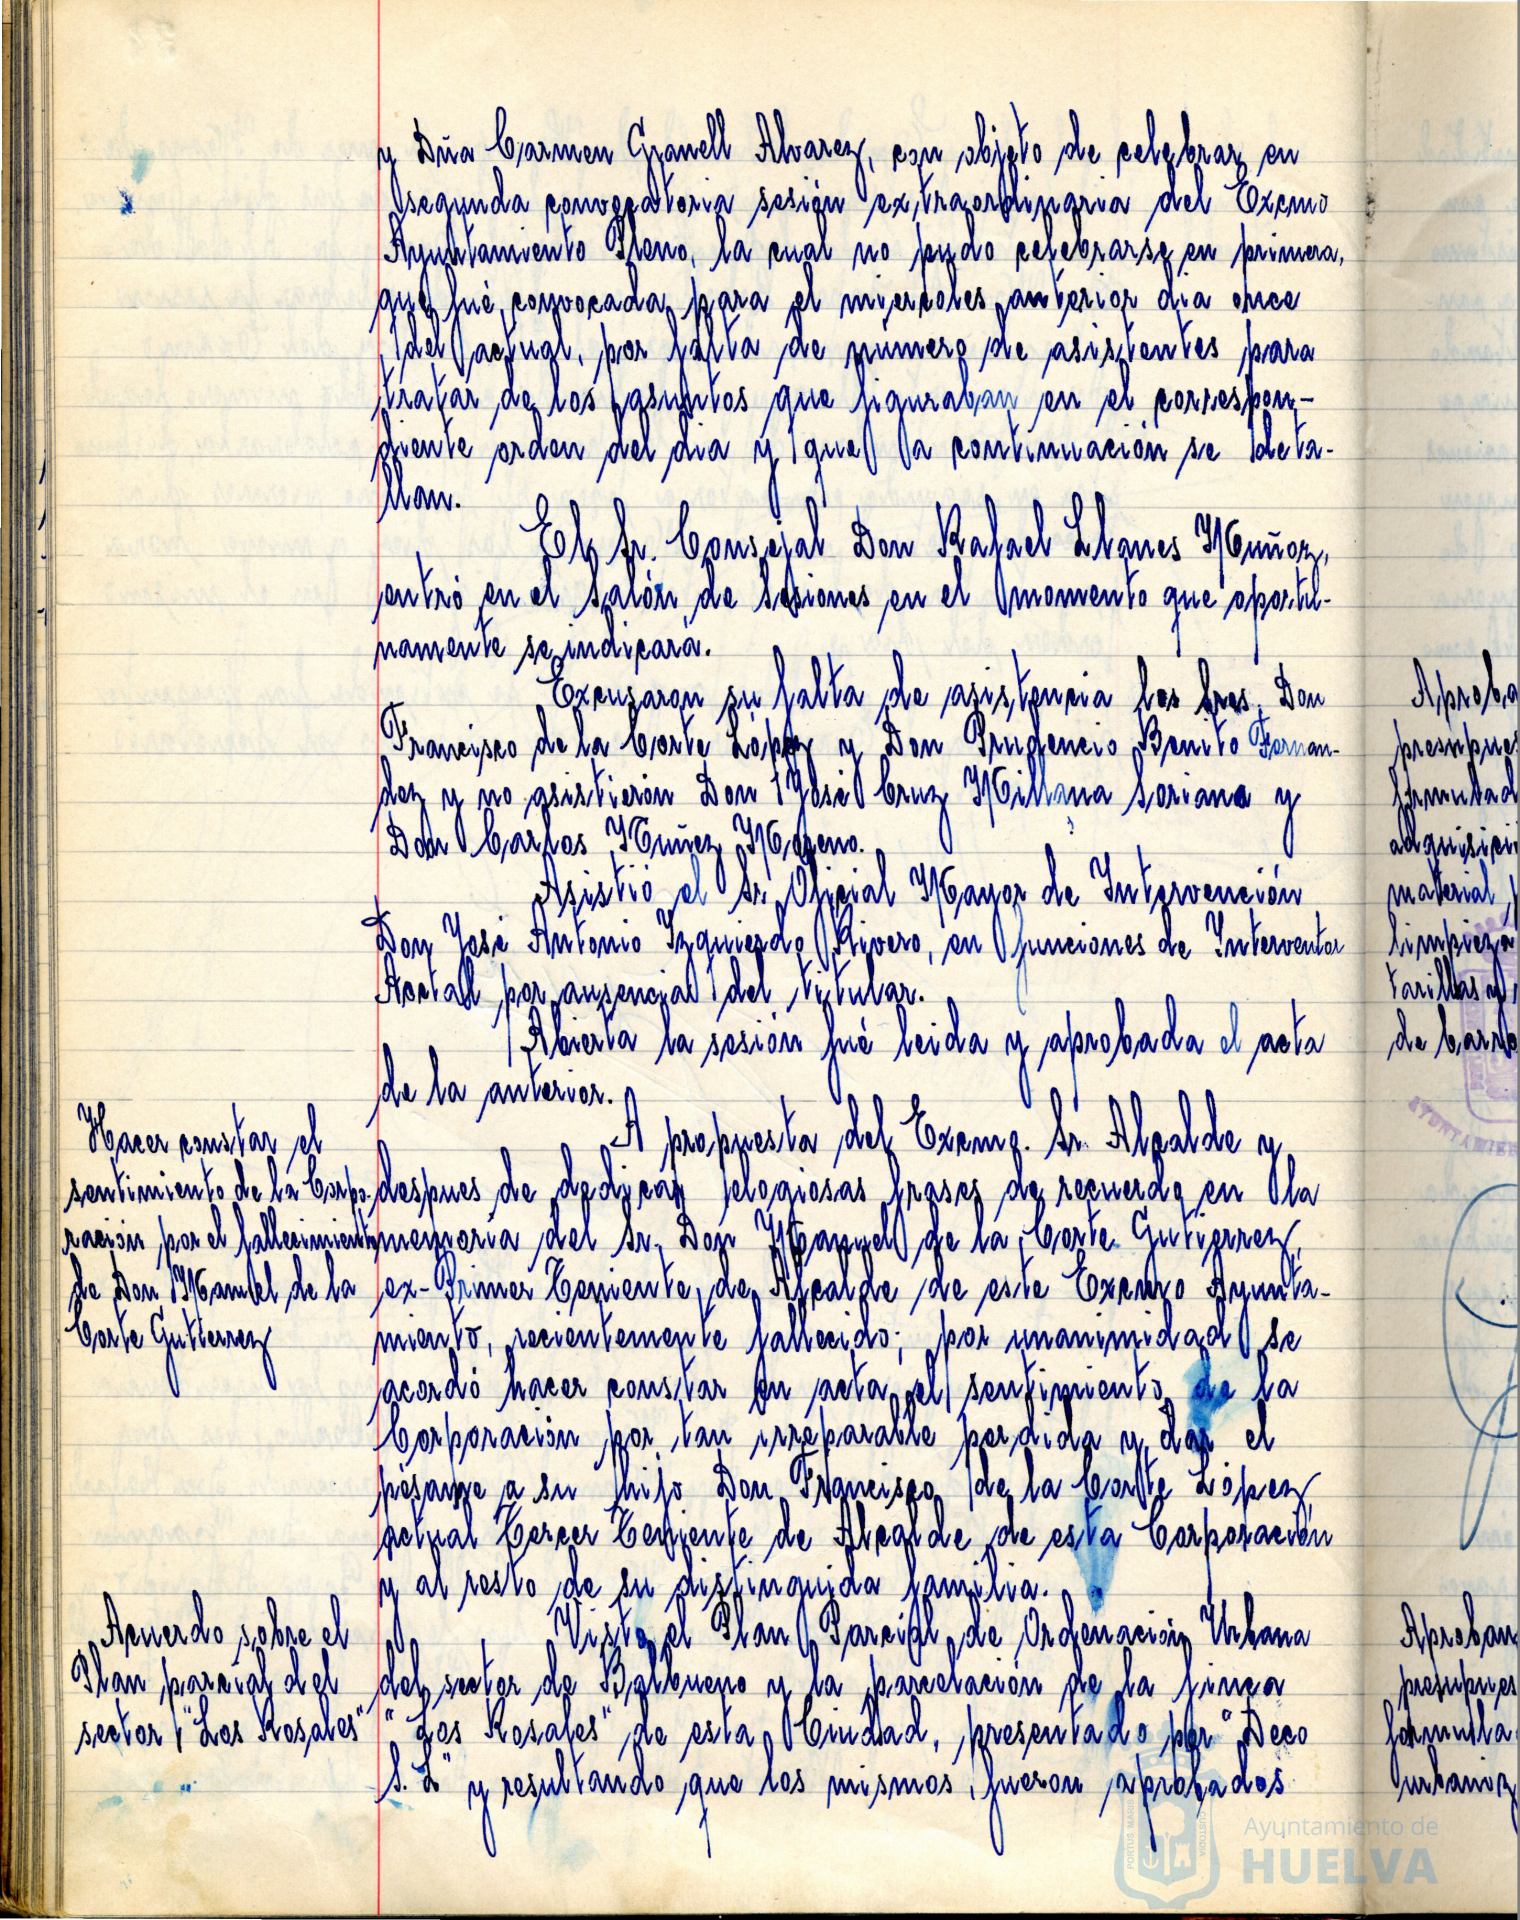 y Dña Carmen Granell Alvarez, con objeto de celebrar en
segunda convocatoria sesión extraordinaria del Excmo
Ayuntamiento Pleno, la cual no pudo celebrarse en primera,
que fué convocada para el miercoles anterior dia once
del actual, por falta de número de asistentes para
tratar de los asuntos que figuraban en el correspon-
diente orden del dia y que a continuación se deta-
llan.
El Sr. Consejal Don Rafael Llanes Muñoz,
entró en el Salón de Sesiones en el momento que oportu-
namente se indicará.
Excusaron su falta de asistencia los Sres. Don
Francisco de la Corte López y Don Prudencio Benito Fernan-
dez y no asistierón Don José Cruz Millana Soriano y
Don Carlos Muñez Moreno.
Asistió el Sr. Oficial Mayor de Intervención
Don José Antonio Izquierdo Rivero, en funciones de Interventor
Acctal por ausencia del titular.
Abierta la sesión fué leida y aprobada el acta
de la anterior.
Hacer constar el
sentimiento de la Corpo-
ración por el fallecimiento
de Don Manuel de la
Corte Gutierrez
A propuesta del Excmo. Sr. Alcalde y
despues de dedicar elogiosas frases de recuerdo en la
memoria del Sr. Don Manuel de la Corte Gutierrez,
ex-Primer Teniente de Alcalde de este Excmo Ayunta-
miento, recientemente fallecido; por unanimidad se
acordó hacer constar en acta el sentimiento de la
Corporación por tan irreparable perdida y dar el
pésame a su hijo Don Francisco de la Corte López,
actual Tercer Teniente de Alcalde de esta Corporación
y al resto de su distinguida familia.
Acuerdo sobre el
Plan parcial del
sector "Los Rosales"
Visto el Plan Parcial de Ordenación Urbana
del sector de Balbueno y la parcelación de la finca
"Los Rosales" de esta Ciudad, presentado por "Deco
S. L" y resultando que los mismos fueron aprobados
material
limpieza
Ayuntamiento de
HUELVA